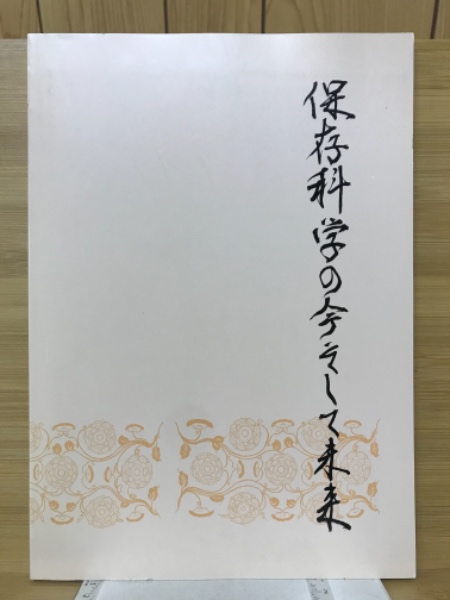 保存科学の今そして未来